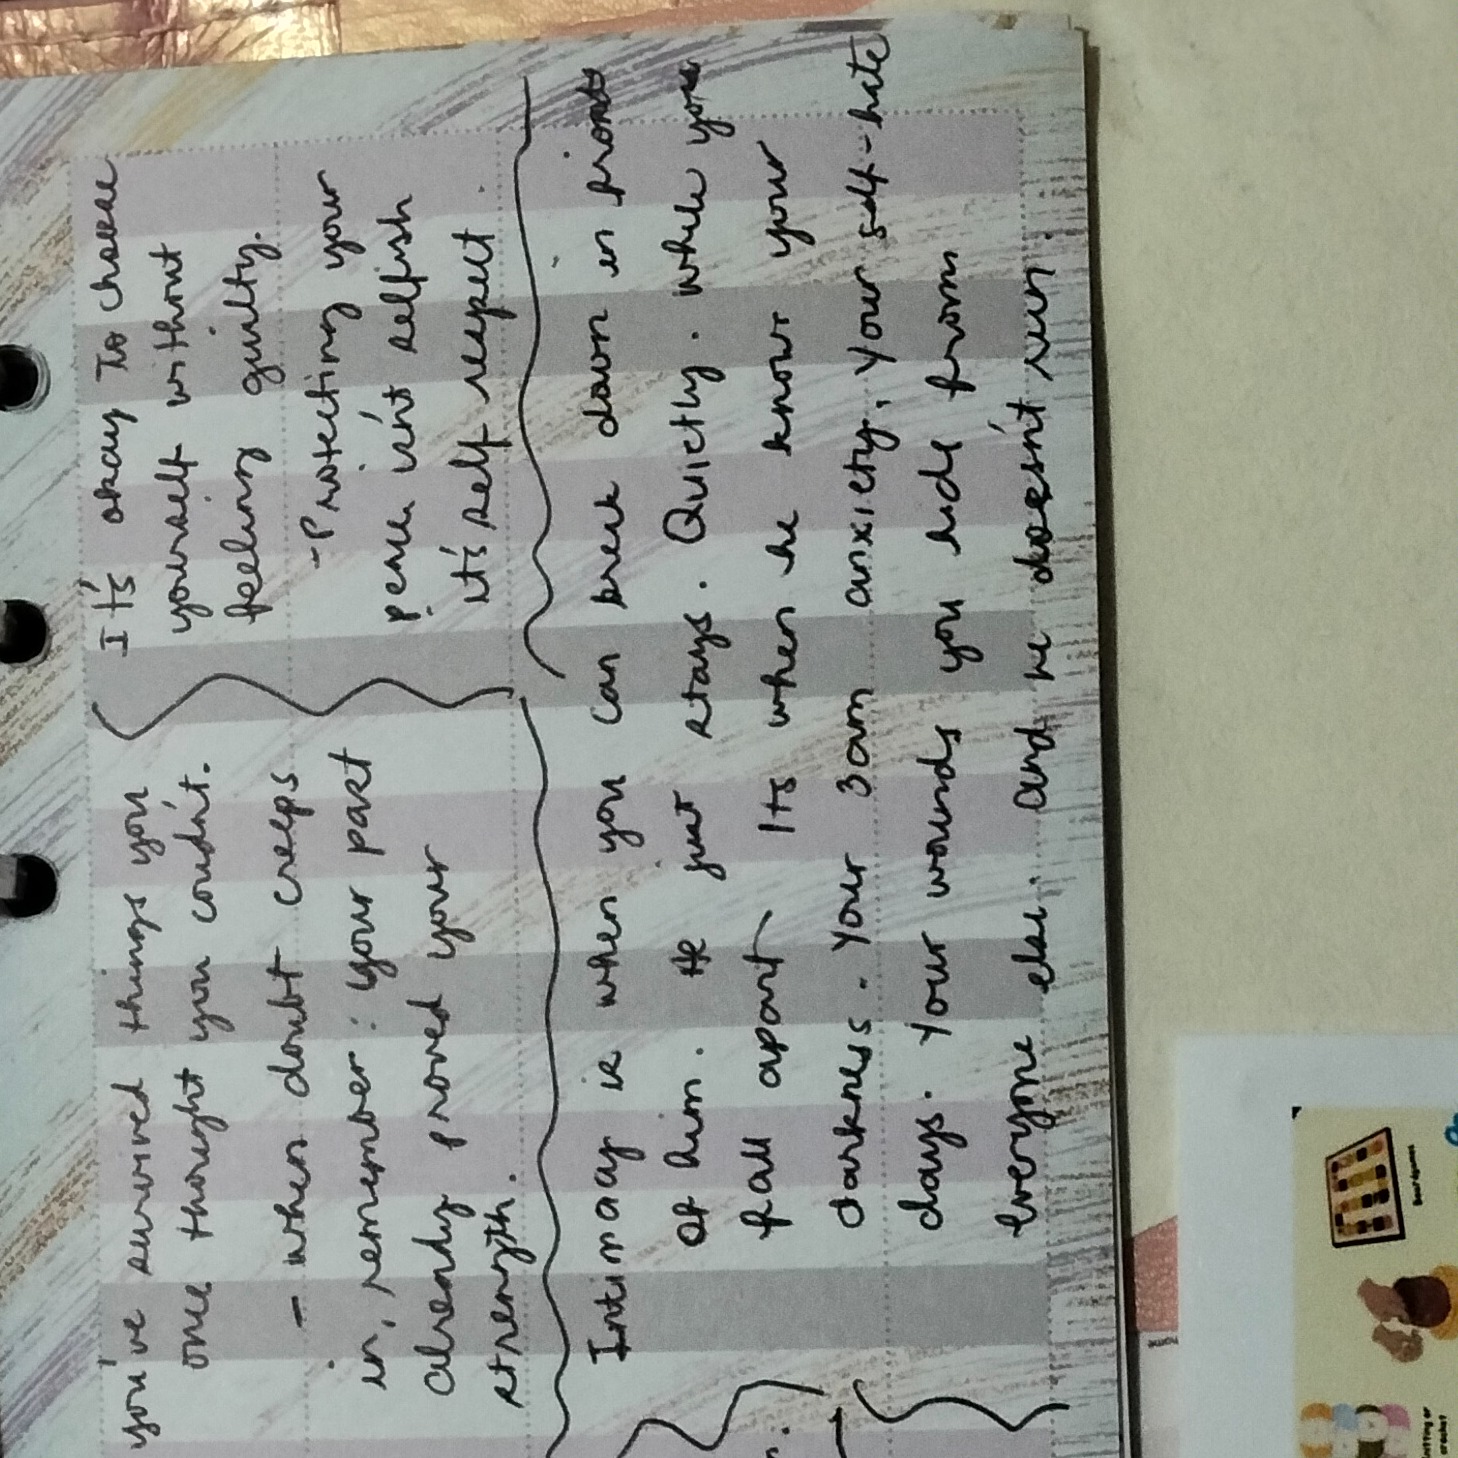 you've survived things you
once thought you couldn't.
- when doubt creeps
in, remember: your past
already proved your
strength.
It's okay to choose
yourself without
feeling guilty.
- Protecting your
peace isn't selfish
it's self respect.
Intimacy is when you can break down in front
of him. He just stays. Quietly. while you
fall apart Its when he knows your
darkness. Your 3am anxiety, Your self-hate
days. Your wounds you hide from
everyone else. and he doesn't run.
Board games
Knitting or
crochet